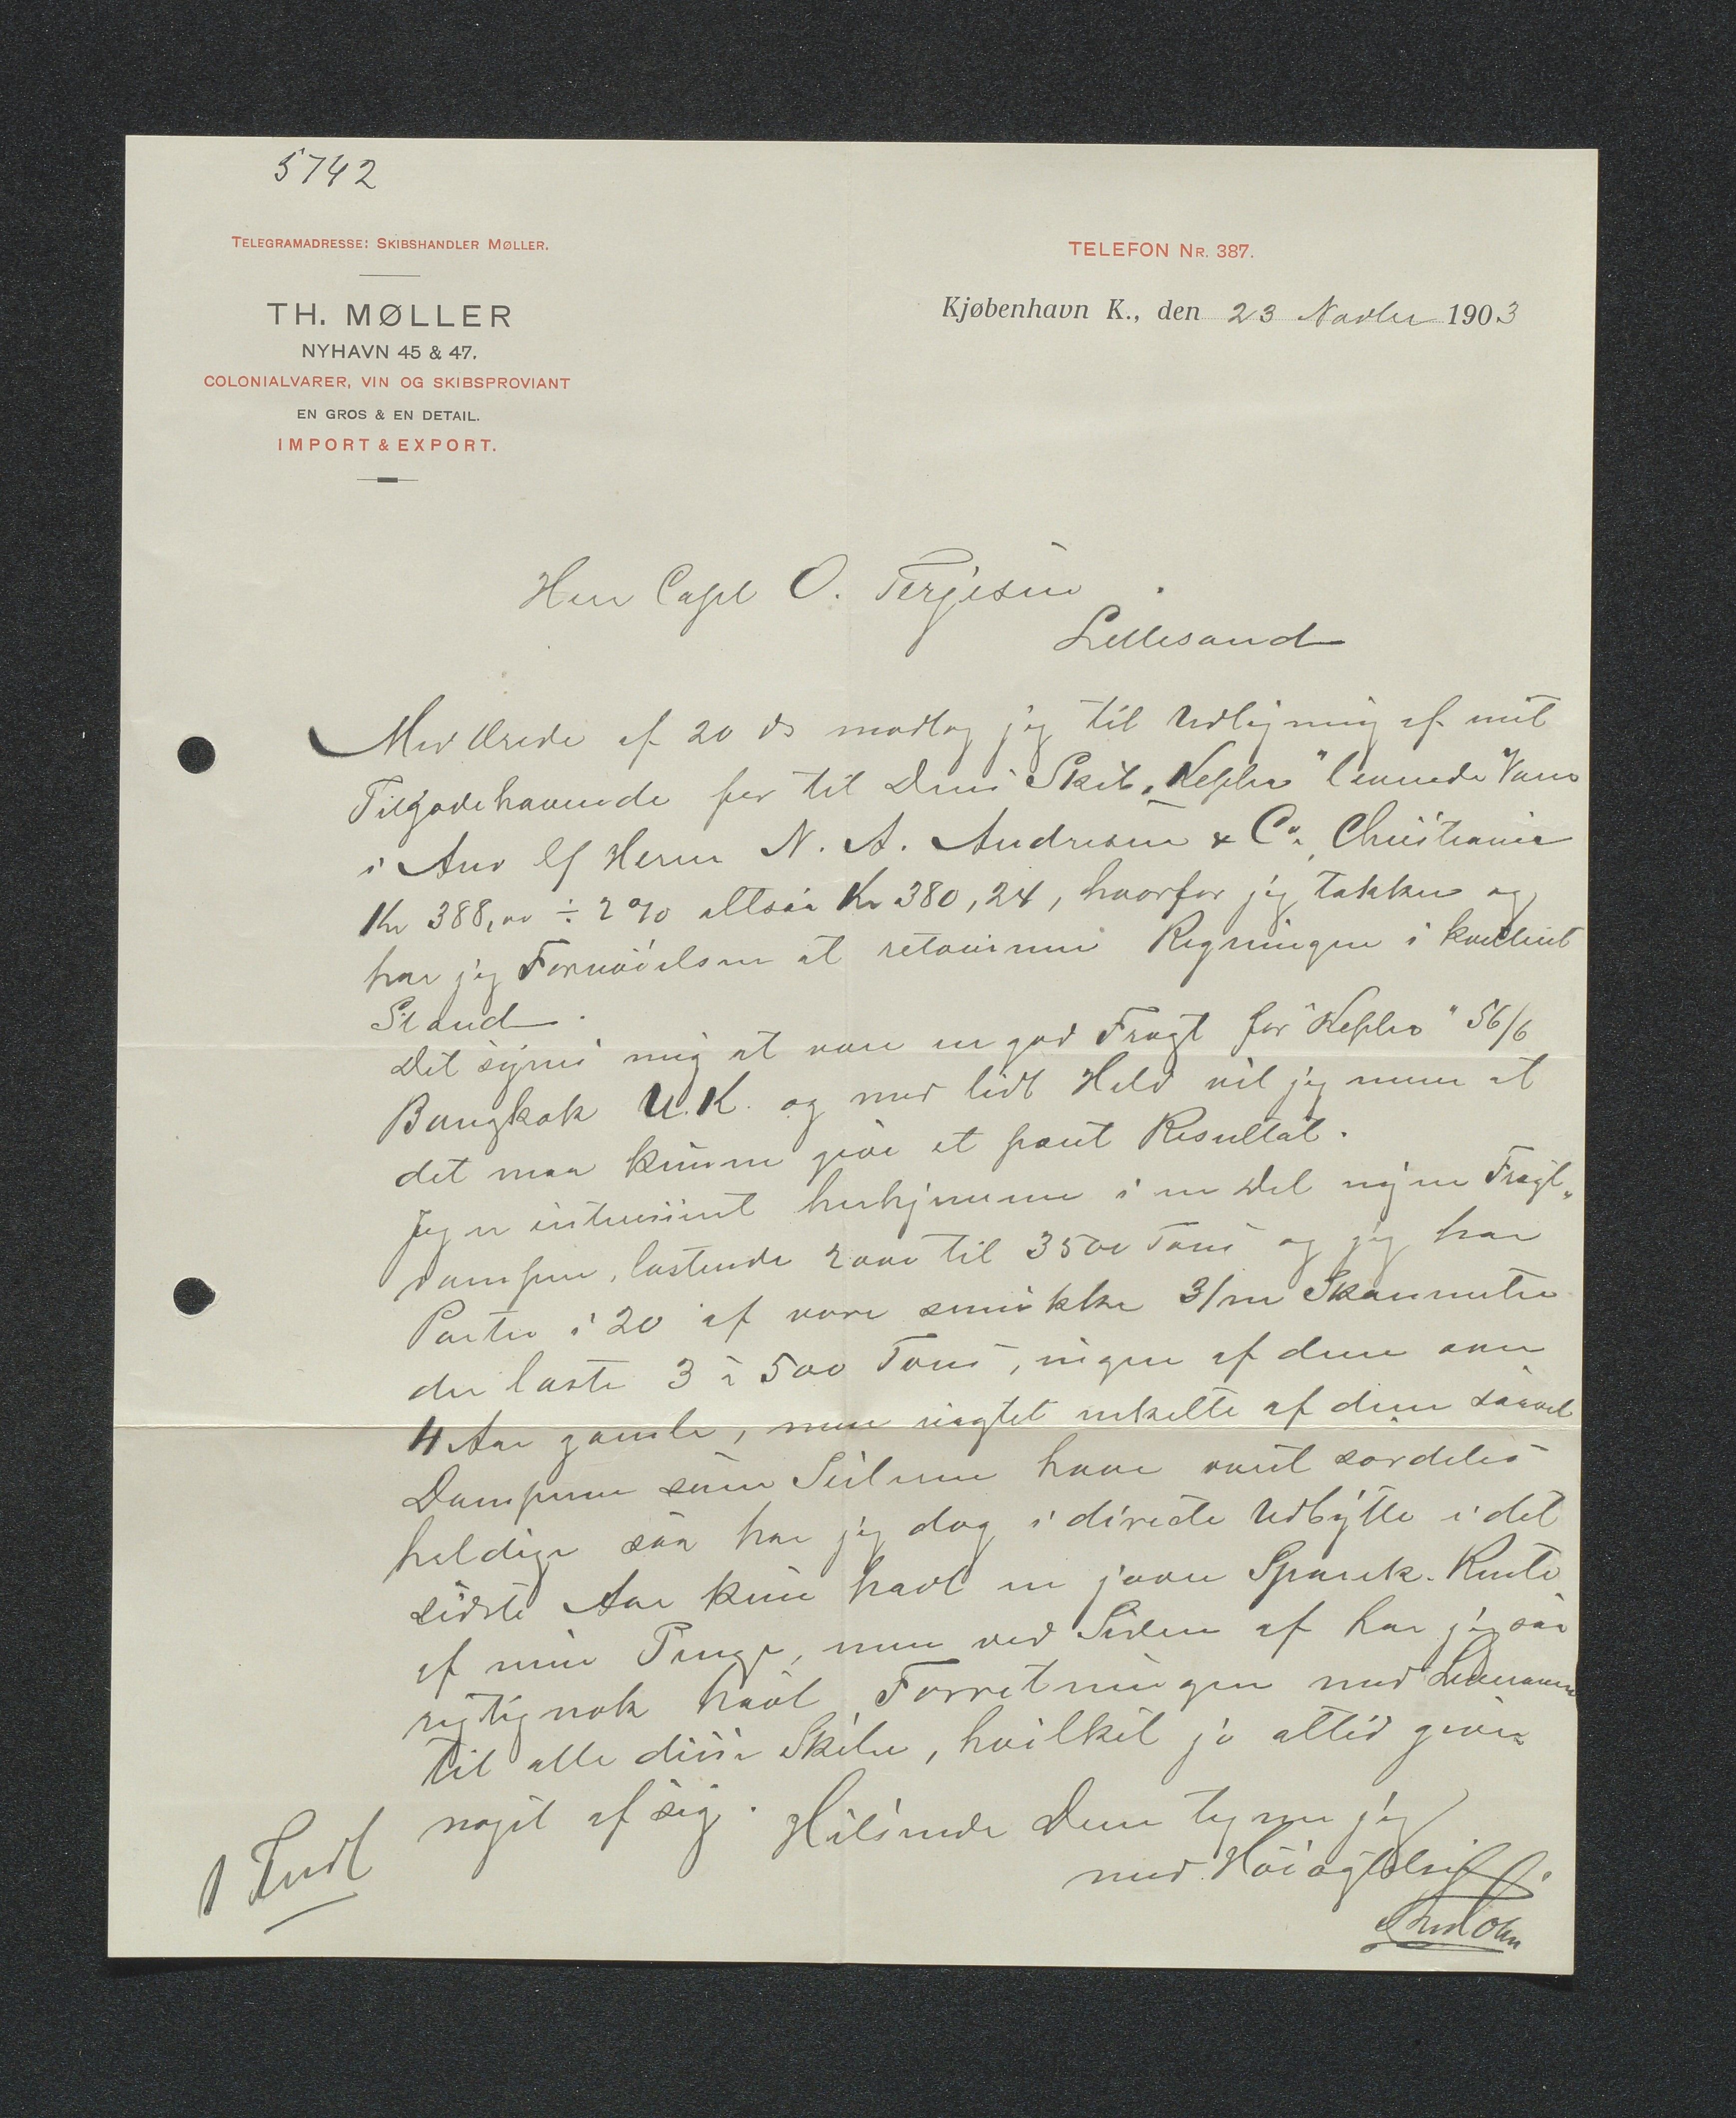 5742
TELEGRAMADRESSE: SKIBSHANDLER MØLLER.
TH. MØLLER
NYHAVN 45 & 47.
COLONIALVARER, VIN OG SKIBSPROVIANT
EN GROS & EN DETAIL.
IMPORT & EXPORT.
TELEFON NR. 387.
Kjøbenhavn K., den 23 Novbr 1903
Herr Capt O. Terjesen
Lillesand
Med Ærede af 20 ds modtog jeg til Udligning af mit
Tilgodehavende for til Deres Skib "Kepler" leverede Varer
i Anv % Herrer N. A. Andresen & Co, Christiania
Kr 388,00 ÷ 2% altsaa Kr 380,24, hvorfor jeg takker og
har jeg Fornøielsen at retournere Regningen i kvitteret
Stand.
Det synes mig at være en god Fragt for "Kepler" 56/6
Bangkok U.K. og med lidt Held vil jeg mene at
det maa kunne give et pænt Resultat.
Jeg er interesseret herhjemme i en Del nyere Fragt„
dampere, lastende 2000 til 3500 Tons og jeg har
Parter i 20 af vore smukke 3/m Skonnerter
der laste 3 à 500 Tons, ingen af dem over
4 Aar gamle, men uagtet enkelte af dem saavel
Damperne som Seilerne have været særdeles
heldige saa har jeg dog i directe Udbytte i det
sidste Aar kun havt en jævn Spark. Rente
af mine Penge, men ved Siden af har jeg saa
rigtignok havt Forretningen med Leverancen
til alle disse Skibe, hvilket jo altid giver
noget af sig. Hilsende Dem tegner jeg
med Høiagtelse
1 Indl